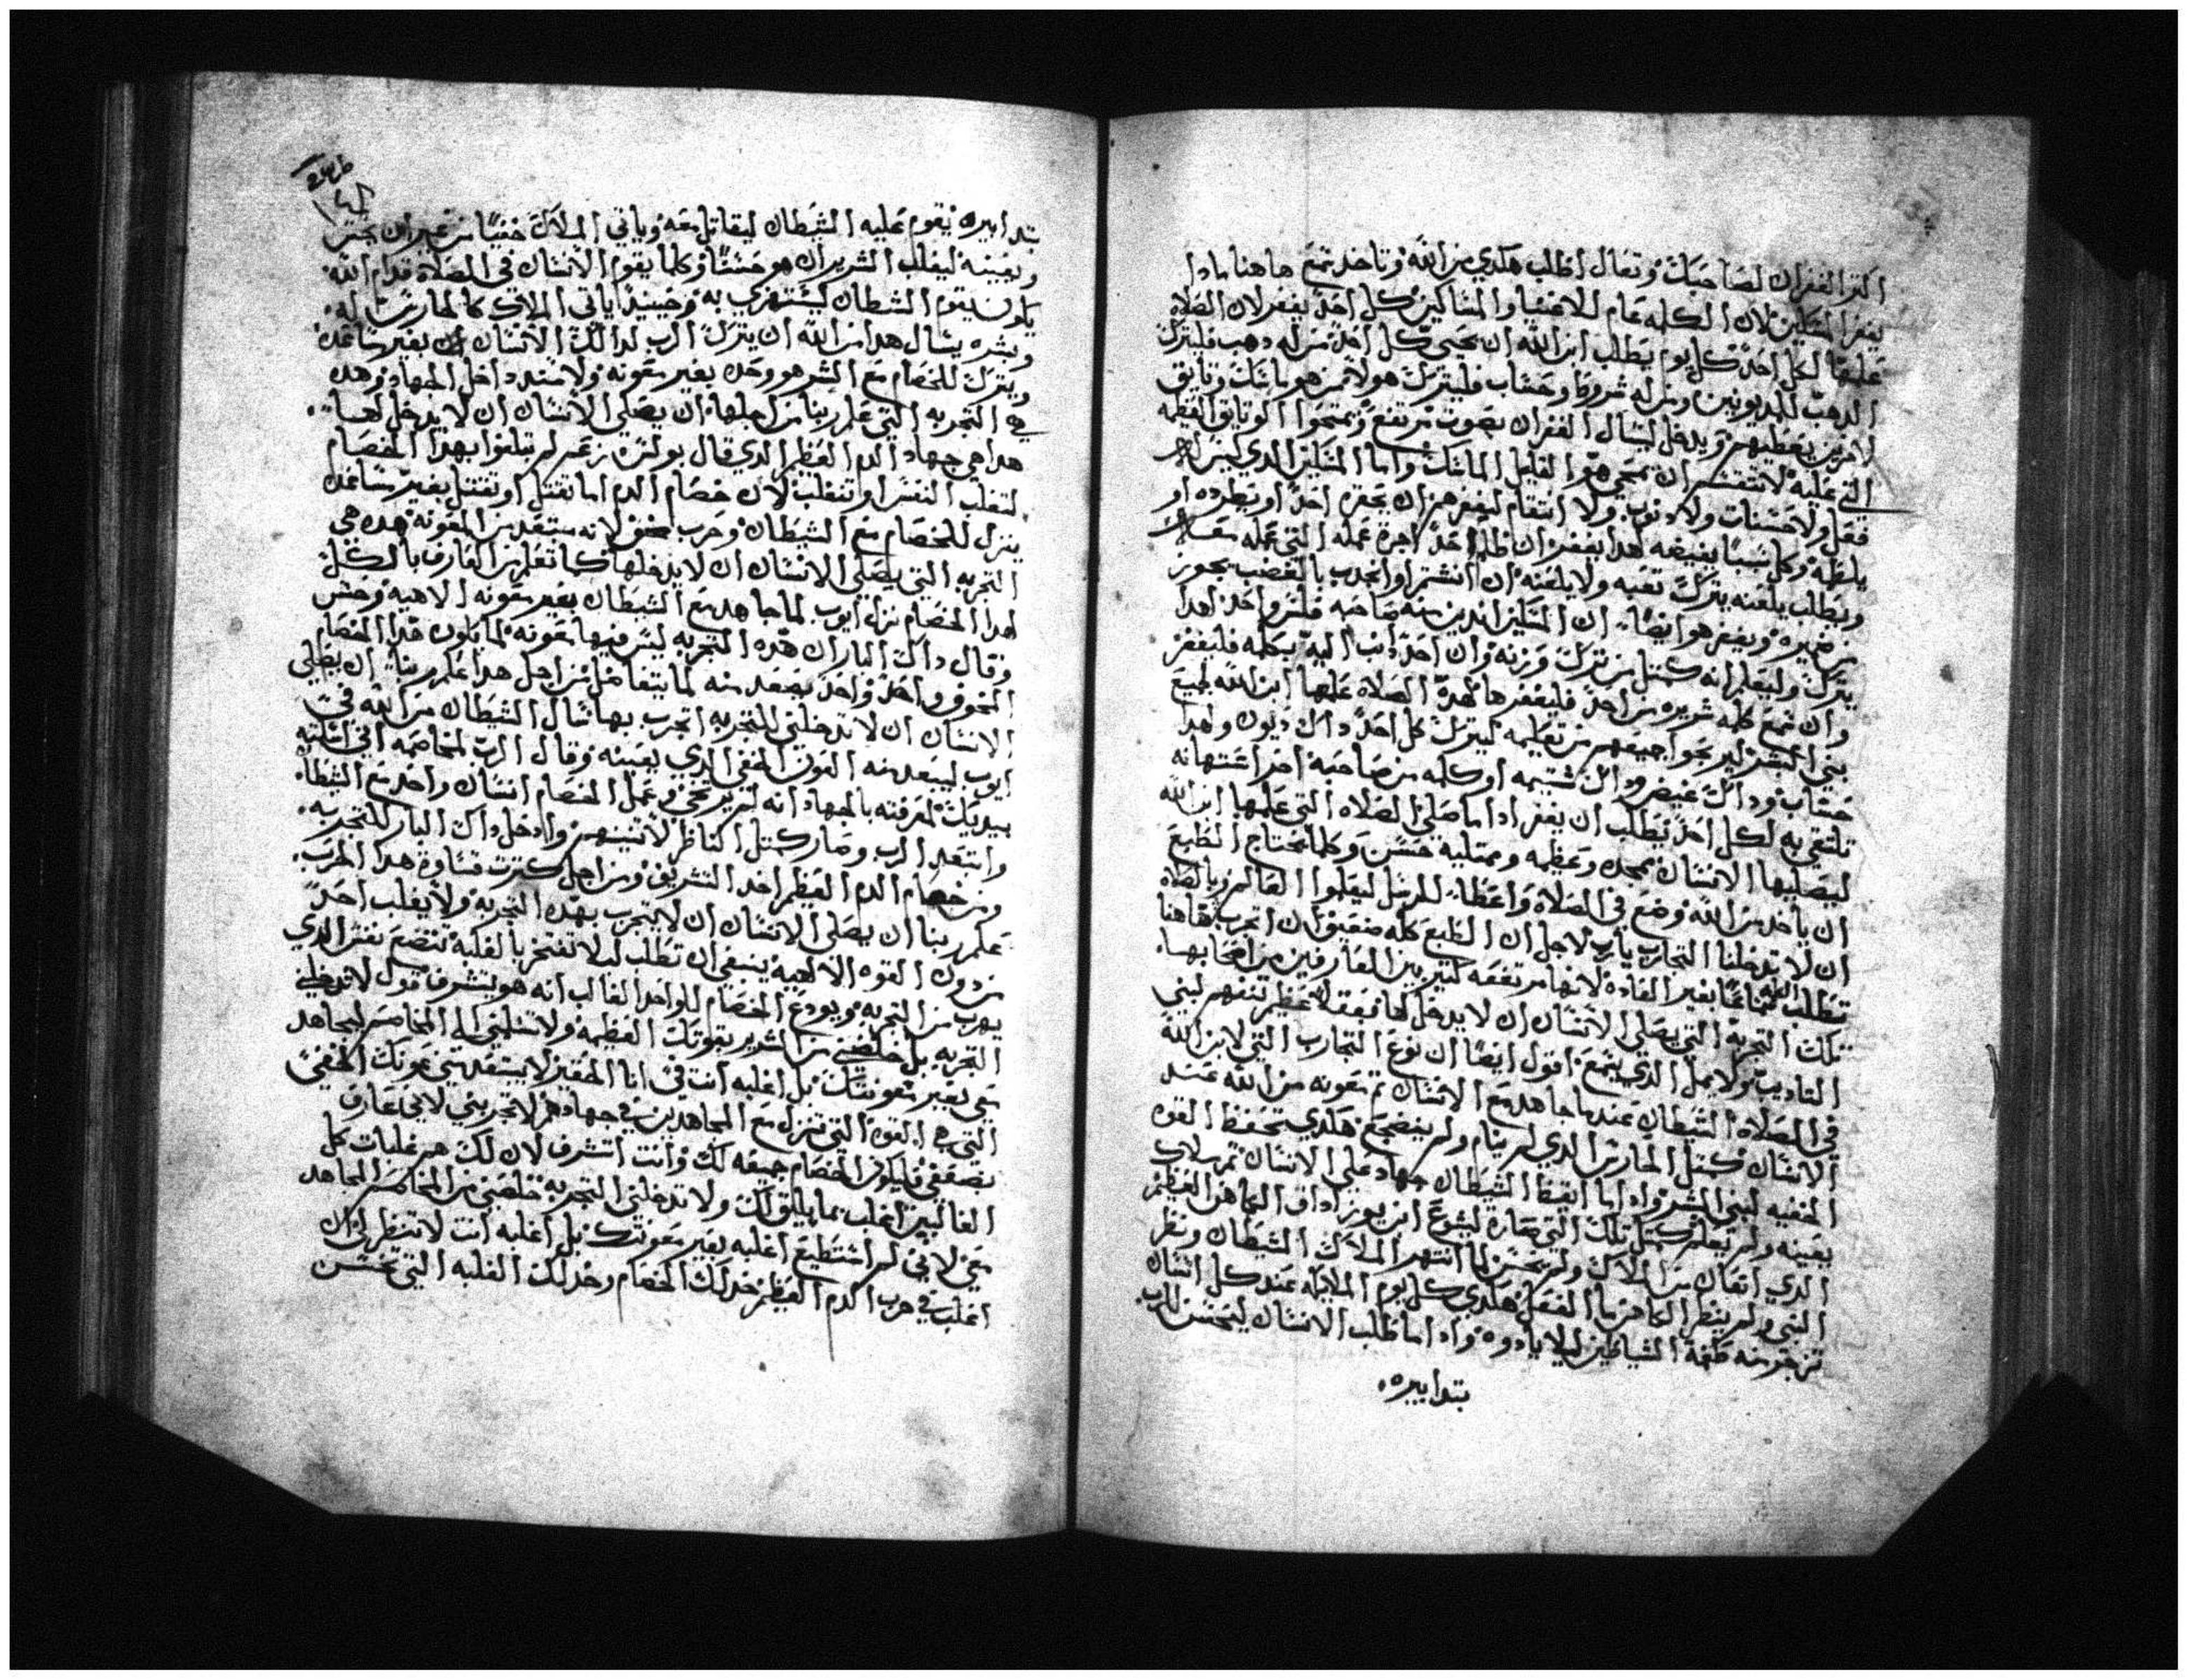 اكتر الغفران لصاحبك وتعال اطلب هكدي من الله وتاخد تمع هاهنا مادا
يغفر المسكين لان الكلمه عام للاغنيا والمساكين كل احد يغفر لان الصلاه
عليها لكل احد كل يوم يطلب ابن الله ان يحيي كل احد من له دهب فليترك
الدهب للمديونين ومن له شرور وحساب فليترك هولا
لاخرين يعطيهم ويدخل ليسال الغفران بصوت مرتفع الوتايق العظيمه
التي عليه لا تنتشر ان تمحي هو القليل الماسك واما المسكين الدي ليس له
فعل ولا حسنات ولا دنوب ولا انتقام ليغفر هو ان يحقره احد او يطرده او
يلطمه وكل سببا يغيضه لهدا يغفر ان ظلم احد اجرة عمله التي عمله
ويطلب يلعنه يترك تعبه ولا يلعنه ان انشتم او انجدب بالغضب يجوز
من ضميره ويغفر هو ايضا ان المسكين اندين منه صاحبه فلس واحد لهدا
يترك وليعلم انه كمتل من يترك وزنه وان احد ادنب اليه بكلمه فليغفر
وان سمع كلمه شريره من احد فليغفرها لهده الصلاه علمها ابن الله لجميع
بني البشر ليربحوا جميعهم من تعليمه ليترك كل احد داك ديون ولهدا
حساب وداك غيض وداك شتيمه او كلمه من صاحبه اخر استهانه
تلتقي به لكل احد يطلب ان يغفر ادا ما صلي الصلاه التي علمها ابن الله
ليصليها الانسان ممجده وعظيمه وممتليه حسن وكلما يحتاج الطبع
ان ياخد من الله وضع في الصلاه واعطا للرسل ليعلموا العالم وبالصلاه
ان لا تدخلنا التجارب يارب لاجل ان الطبع كله ضعيف ان اتجرب هاهنا
تطلب اليه بغير العاده لانها مرتفعه كتير بين العارفين من اصحابها
تلك التجربه التي يصلي الانسان ان لا يدخل لها عظيم تنفهم لبني
التاديب ولا يمل الدي يسمع اقول ايضا ان نوع التجارب التي لابن الله
في الصلاه الشيطان عندما جاهد مع الانسان تم معونه من الله عند
الانسان كمتل الحارس الدي لم ينام ولم ينضجع هكدي تحفظ القوه
الخفيه لبني البشر وادا ما ايقظ الشيطان جهاد علي الانسان تم ملاك
يعينه ولم يعلم كمتل تلك التي صاره ليشوع ابن يوزاداق الكاهن العظيم
الدي اتعان من الملاك ولم يحس لما انتهر الملاك الشيطان ونظر
النبي ولم ينظر الكاهن بالفعل هكدي كل يوم الملايكه عند كل انسان
تزجر منه طغمة الشياطين ليلا يادوه وادا ما طلب الانسان ليحسن للرب
بتدابيره
بتدابيره يقوم عليه الشيطان ليقاتل معه وياتي الملاك خفيا من غير ان يحس
ويعينه ليغلب الشرير ان هو حسنا وكلما يقوم الانسان في الصلاه قدام الله
يكون يقوم الشيطان ليستهزي به وحينيدا ياتي الملاك كالحارس له
وبشره يسال هدا من الله ان يترك الرب لدالك الانسان بغير مساعده
ويترك للخصام مع الشر هو وحده بغير معونه ولا سند داخل الجهاد وهده
هي التجربه التي علم ربنا من اجلها ان يصلي الانسان ان لا يدخل لها
هدا هي جهاد الدم العظيم الدي قال بولس زعم لم تبلغوا بهدا الخصام
لتغلب النفس او تنغلب لان خصام الدم اما تقتل او تنقتل بغير مساعده
ينزل للخصام مع الشيطان وحرب مخوف لانه مبتعد من المعونه هده هي
التجربه التي يصلي الانسان ان لا يدخلها كما تعلم من العارف بالكل
لهدا الخصام نزل ايوب لما جاهد مع الشيطان بغير معونه الاهيه وحس
وقال داك البار ان هده التجربه ليس فيها معونه لما يكون هدا الخصام
المخوف واحد وواحد يصعد منه لما يتفاضل من اجل هدا علم ربنا ان يصلي
الانسان ان لا تدخلني للتجربه اتجرب بها سال الشيطان من الله في
ايوب ليبعد منه العون الخفي الدي يعينه وقال الرب لمخاصمه اني اسلمته
بيديك لمعرفته بالجهاد انه لم يرتخي وعمل الخصام انسان واحد مع الشيطان
وابتعد الرب وصار كمتل الناظر لاتنينهم وادخل داك البار للتجربه
ومن خصام الدم العظيم اخد التشريف ومن اجل كترت قساوة هدا الحرب
علم ربنا ان يصلي الانسان ان لا يتجرب بهده التجربه ولا يغلب احد
من دون القوه الالهيه ينبغي ان تطلب ليلا تفتخر بالغلبه تتضع نفس الدي
يهرب من التجربه ويودع الخصام للواحد الغالب انه هو يتشرف قول لا تدخلني
التجربه بل خلصني من الشرير بقوتك العظيمه ولا تسلمني الي المخاصم ليجاهد
معي بغير معونتك بل اغلبه انت في انا الحقير لا يبتعد مني عونك الخفي
التي هي القوه التي تنزل مع المجاهدين في جهادهم لا تجربني لاني عارف
بضعفي فليكون الخصام جميعه لك وانت اتشرف لان لك هم غلبات كل
الغالبين اغلب بما يليق لك ولا تدخلني التجربه خلصني من المخاصم المجاهد
معي لاني لم استطيع اغلبه بغير معونتك بل اغلبه انت لا تنظر ان
اغلب في حرب الدم العظيم خد لك الخصام وخد لك الغلبه التي تحسن